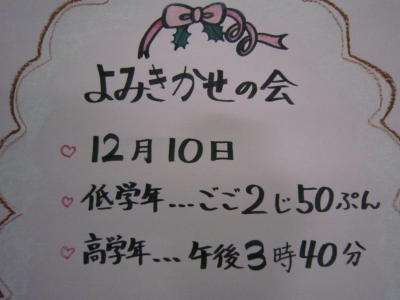 よみきかせの会
♡ 12月10日
♡ 低学年...ごご2じ50ぷん
♡ 高学年...午後3時40分